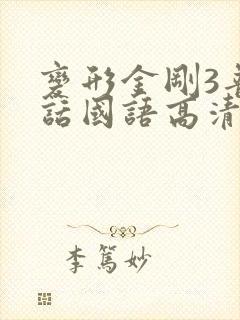 變形金剛3普
話國語高清
李篤妙